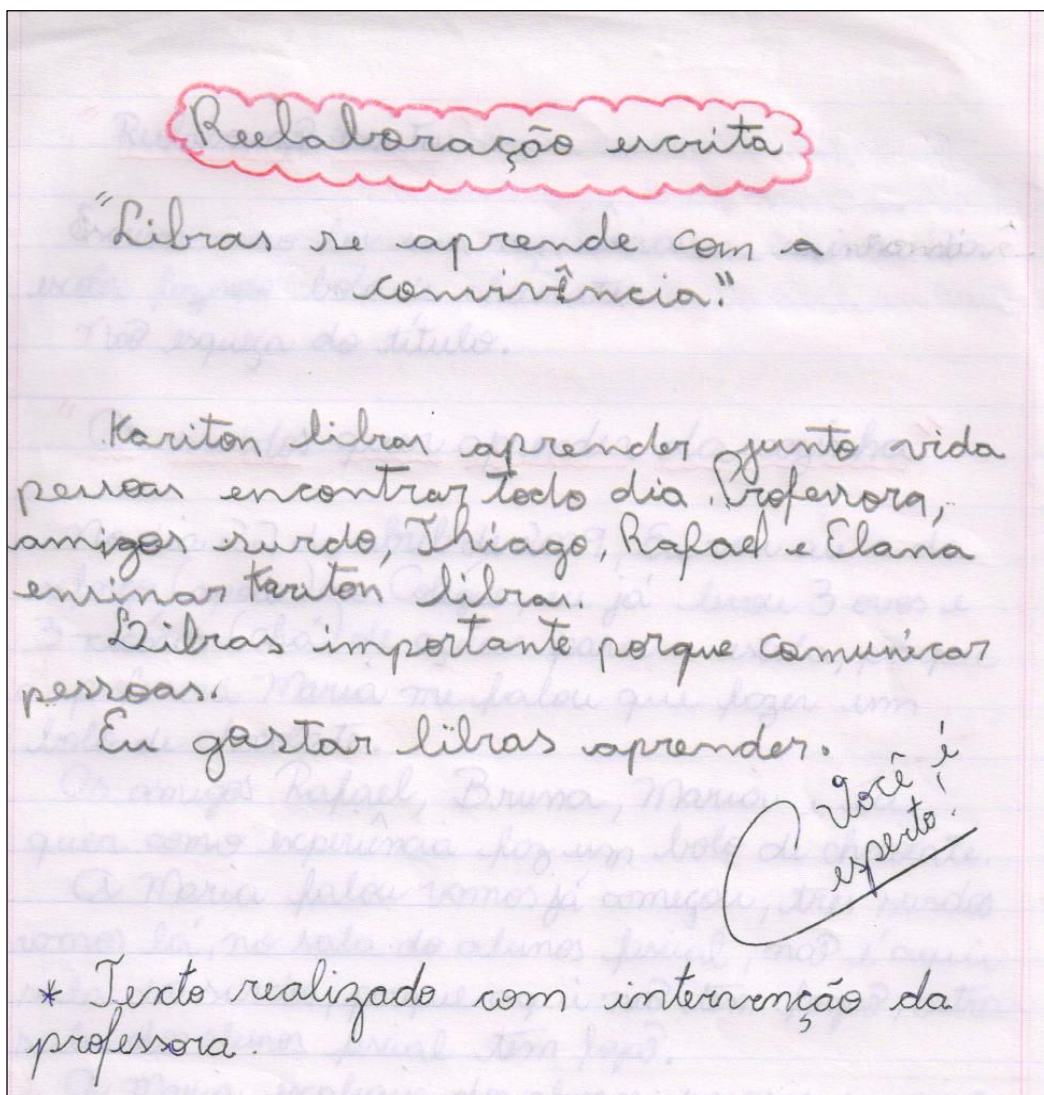 Reelaboração escrita
"Libras se aprende com a
convivência."
Kariton libras aprender junto vida
pessoas encontrar todo dia. Professora,
amigos surdo, Thiago, Rafael e Elana
ensinar Kariton libras.
Libras importante porque comunicar
pessoas.
Eu gostar libras aprender.
Você é
esperto!
* Texto realizado com intervenção da
professora.